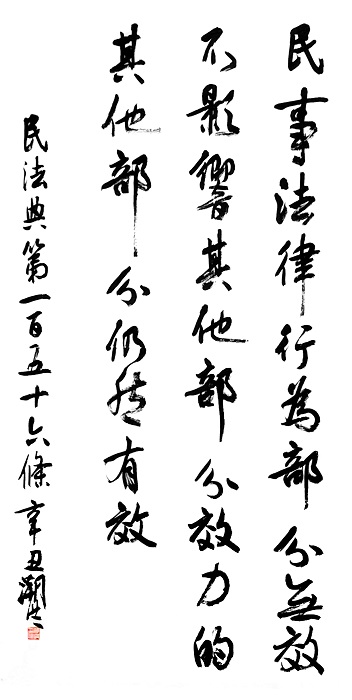 民事法律行為部分無效
不影響其他部分效力的
其他部分仍然有效
民法典第一百五十六條 辛丑